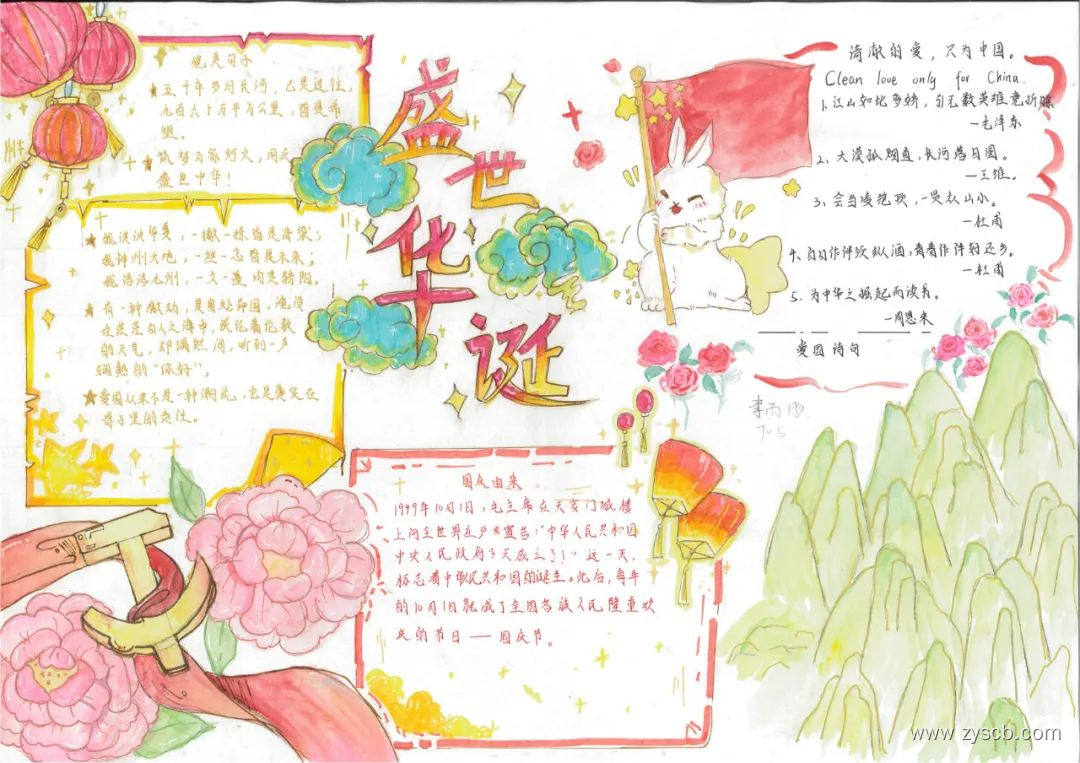 绝美句子
五千年岁月长河，已是过往，
九百六十万平方公里，皆是希
望。
万家灯火，国庆
盛世中华！
泱泱华夏，一撇一捺皆是脊梁；
神州大地，一丝一念皆是未来；
浩浩九州，一文一墨均是骄阳。
有一种激动，是身处异国，淹没
的天气，却偶然间，听到一声
细熟的“你好”。
爱国从来不是一种潮流，它是
骨子里的责任。
盛世华诞
国庆由来
1949年10月1日，毛主席在天安门城楼
上向全世界庄严宣告：“中华人民共和国
中央人民政府今天成立了！”这一天，
标志着中华人民共和国的诞生。此后，每年
的10月1日就成了全国各族人民隆重欢
庆的节日——国庆节。
清澈的爱，只为中国。
Clean love only for China.
1、江山如此多娇，引无数英雄竞折腰
—毛泽东
2、大漠孤烟直，长河落日圆。
—王维。
3、会当凌绝顶，一览众山小。
—杜甫
4、白日作伴放纵酒，青春作伴好还乡。
—杜甫
5、为中华之崛起而读书。
—周恩来
爱国诗句
705
www.zyscb.com